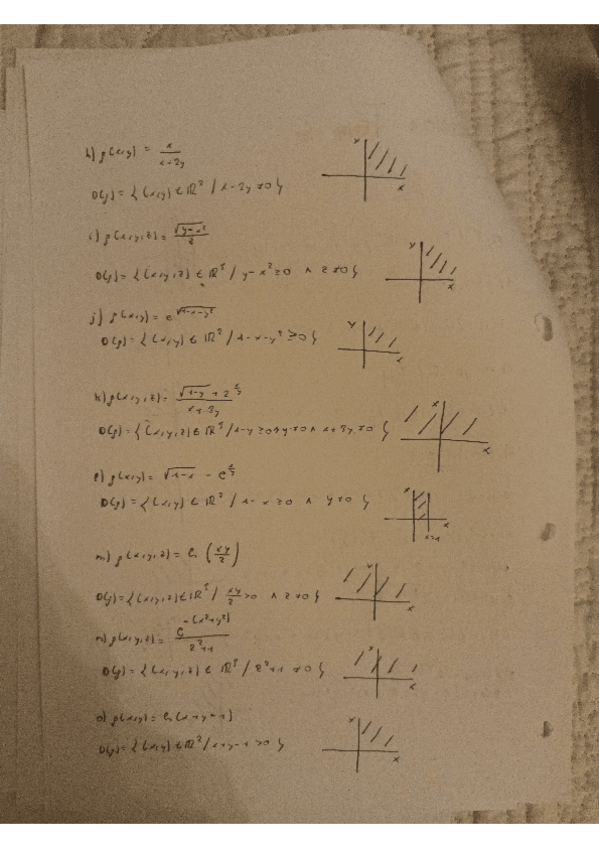 h) f(x,y) = x/(x+2y)
D(f) = {(x,y) ∈ ℝ² / x-2y ≠ 0}
y
x
i) f(x,y,z) = √(y-x²)/z
D(f) = {(x,y,z) ∈ ℝ³ / y-x² ≥ 0 ∧ z ≠ 0}
y
x
j) f(x,y) = e^√(1-x-y²)
D(f) = {(x,y) ∈ ℝ² / 1-x-y² ≥ 0}
y
x
k) f(x,y,z) =
D(f) = {(x,y,z) ∈ ℝ³ / 1-y ≥ 0 ∧ y ≠ 0 ∧ x+3y ≠ 0}
x
l) f(x,y) = √(1-x) - e^(x/y)
D(f) = {(x,y) ∈ ℝ² / 1-x ≥ 0 ∧ y ≠ 0}
y
x
x=1
m) f(x,y,z) = ln (xy/z)
D(f) = {(x,y,z) ∈ ℝ³ / xy/z > 0 ∧ z ≠ 0}
y
x
n) f(x,y,z) = e^-(x²+y²)/(z²+1)
D(f) = {(x,y,z) ∈ ℝ³ / z²+1 ≠ 0}
y
x
o) f(x,y) = ln(x+y-1)
D(f) = {(x,y) ∈ ℝ² / x+y-1 > 0}
y
x